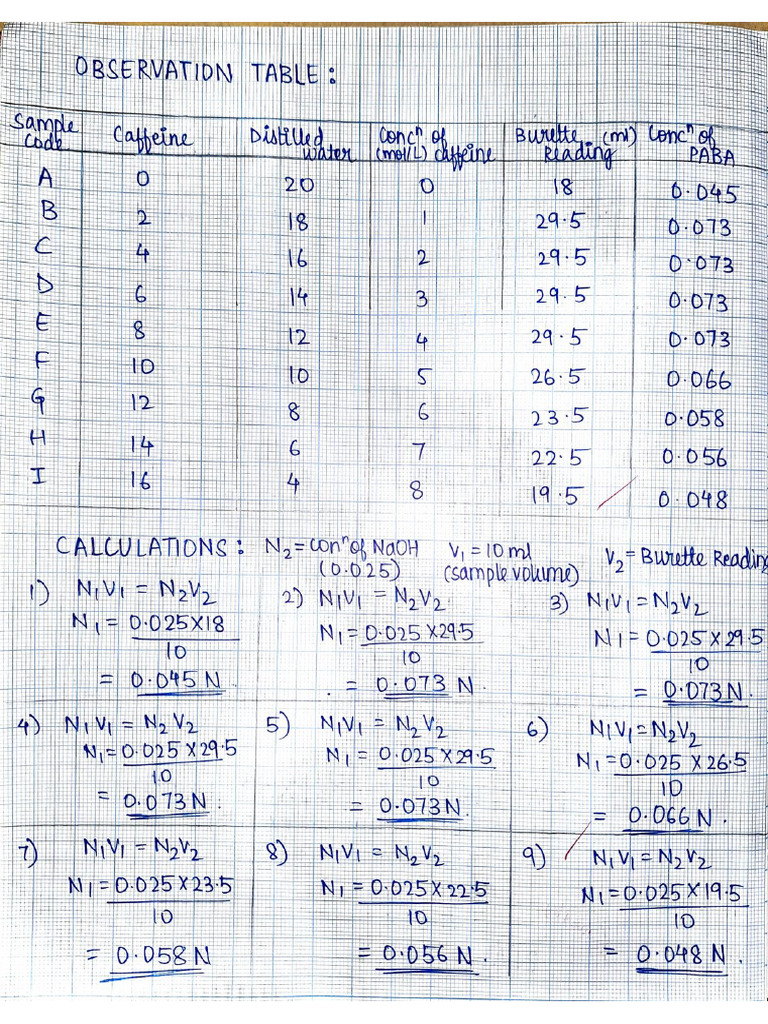 OBSERVATION TABLE:
Sample Code | Caffeine | Distilled water | Concⁿ of (mol/L) caffeine | Burette (ml) Reading | Concⁿ of PABA
A 0 20 0 18 0.045
B 2 18 1 29.5 0.073
C 4 16 2 29.5 0.073
D 6 14 3 29.5 0.073
E 8 12 4 29.5 0.073
F 10 10 5 26.5 0.066
G 12 8 6 23.5 0.058
H 14 6 7 22.5 0.056
I 16 4 8 19.5 0.048
CALCULATIONS: N₂ = conⁿ of NaOH (0.025) V₁ = 10 ml (sample volume) V₂ = Burette Reading
1) N₁V₁ = N₂V₂
N₁ = 0.025×18
10
= 0.045 N.
2) N₁V₁ = N₂V₂
N₁ = 0.025×29.5
10
= 0.073 N.
3) N₁V₁ = N₂V₂
N₁ = 0.025×29.5
10
= 0.073 N.
4) N₁V₁ = N₂V₂
N₁ = 0.025×29.5
10
= 0.073 N.
5) N₁V₁ = N₂V₂
N₁ = 0.025×29.5
10
= 0.073 N.
6) N₁V₁ = N₂V₂
N₁ = 0.025×26.5
10
= 0.066 N.
7) N₁V₁ = N₂V₂
N₁ = 0.025×23.5
10
= 0.058 N
8) N₁V₁ = N₂V₂
N₁ = 0.025×22.5
10
= 0.056 N.
9) N₁V₁ = N₂V₂
N₁ = 0.025×19.5
10
= 0.048 N.